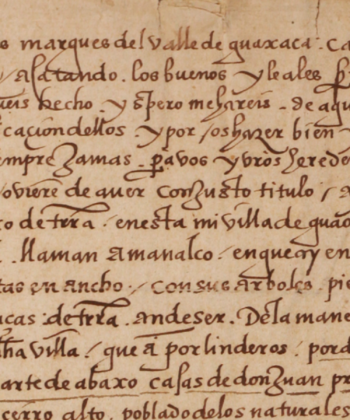 s marques del valle de guaxaca. Ca
acatando. los buenos y leales
hecho. y spero me hareis. de aqu
cacion dellos y por os hazer bien
empre Jamas. para vos y vros herede
oviere de aver con Justo titulo
o de trra. en esta mi villa de
llaman amanalco. en que ay en
tas en ancho. con sus arboles. pie
ças de trra. an de ser. De la mane
villa que a por linderos. por d
arte de abaxo casas de don Juan pr
cerro alto. poblado de los naturales